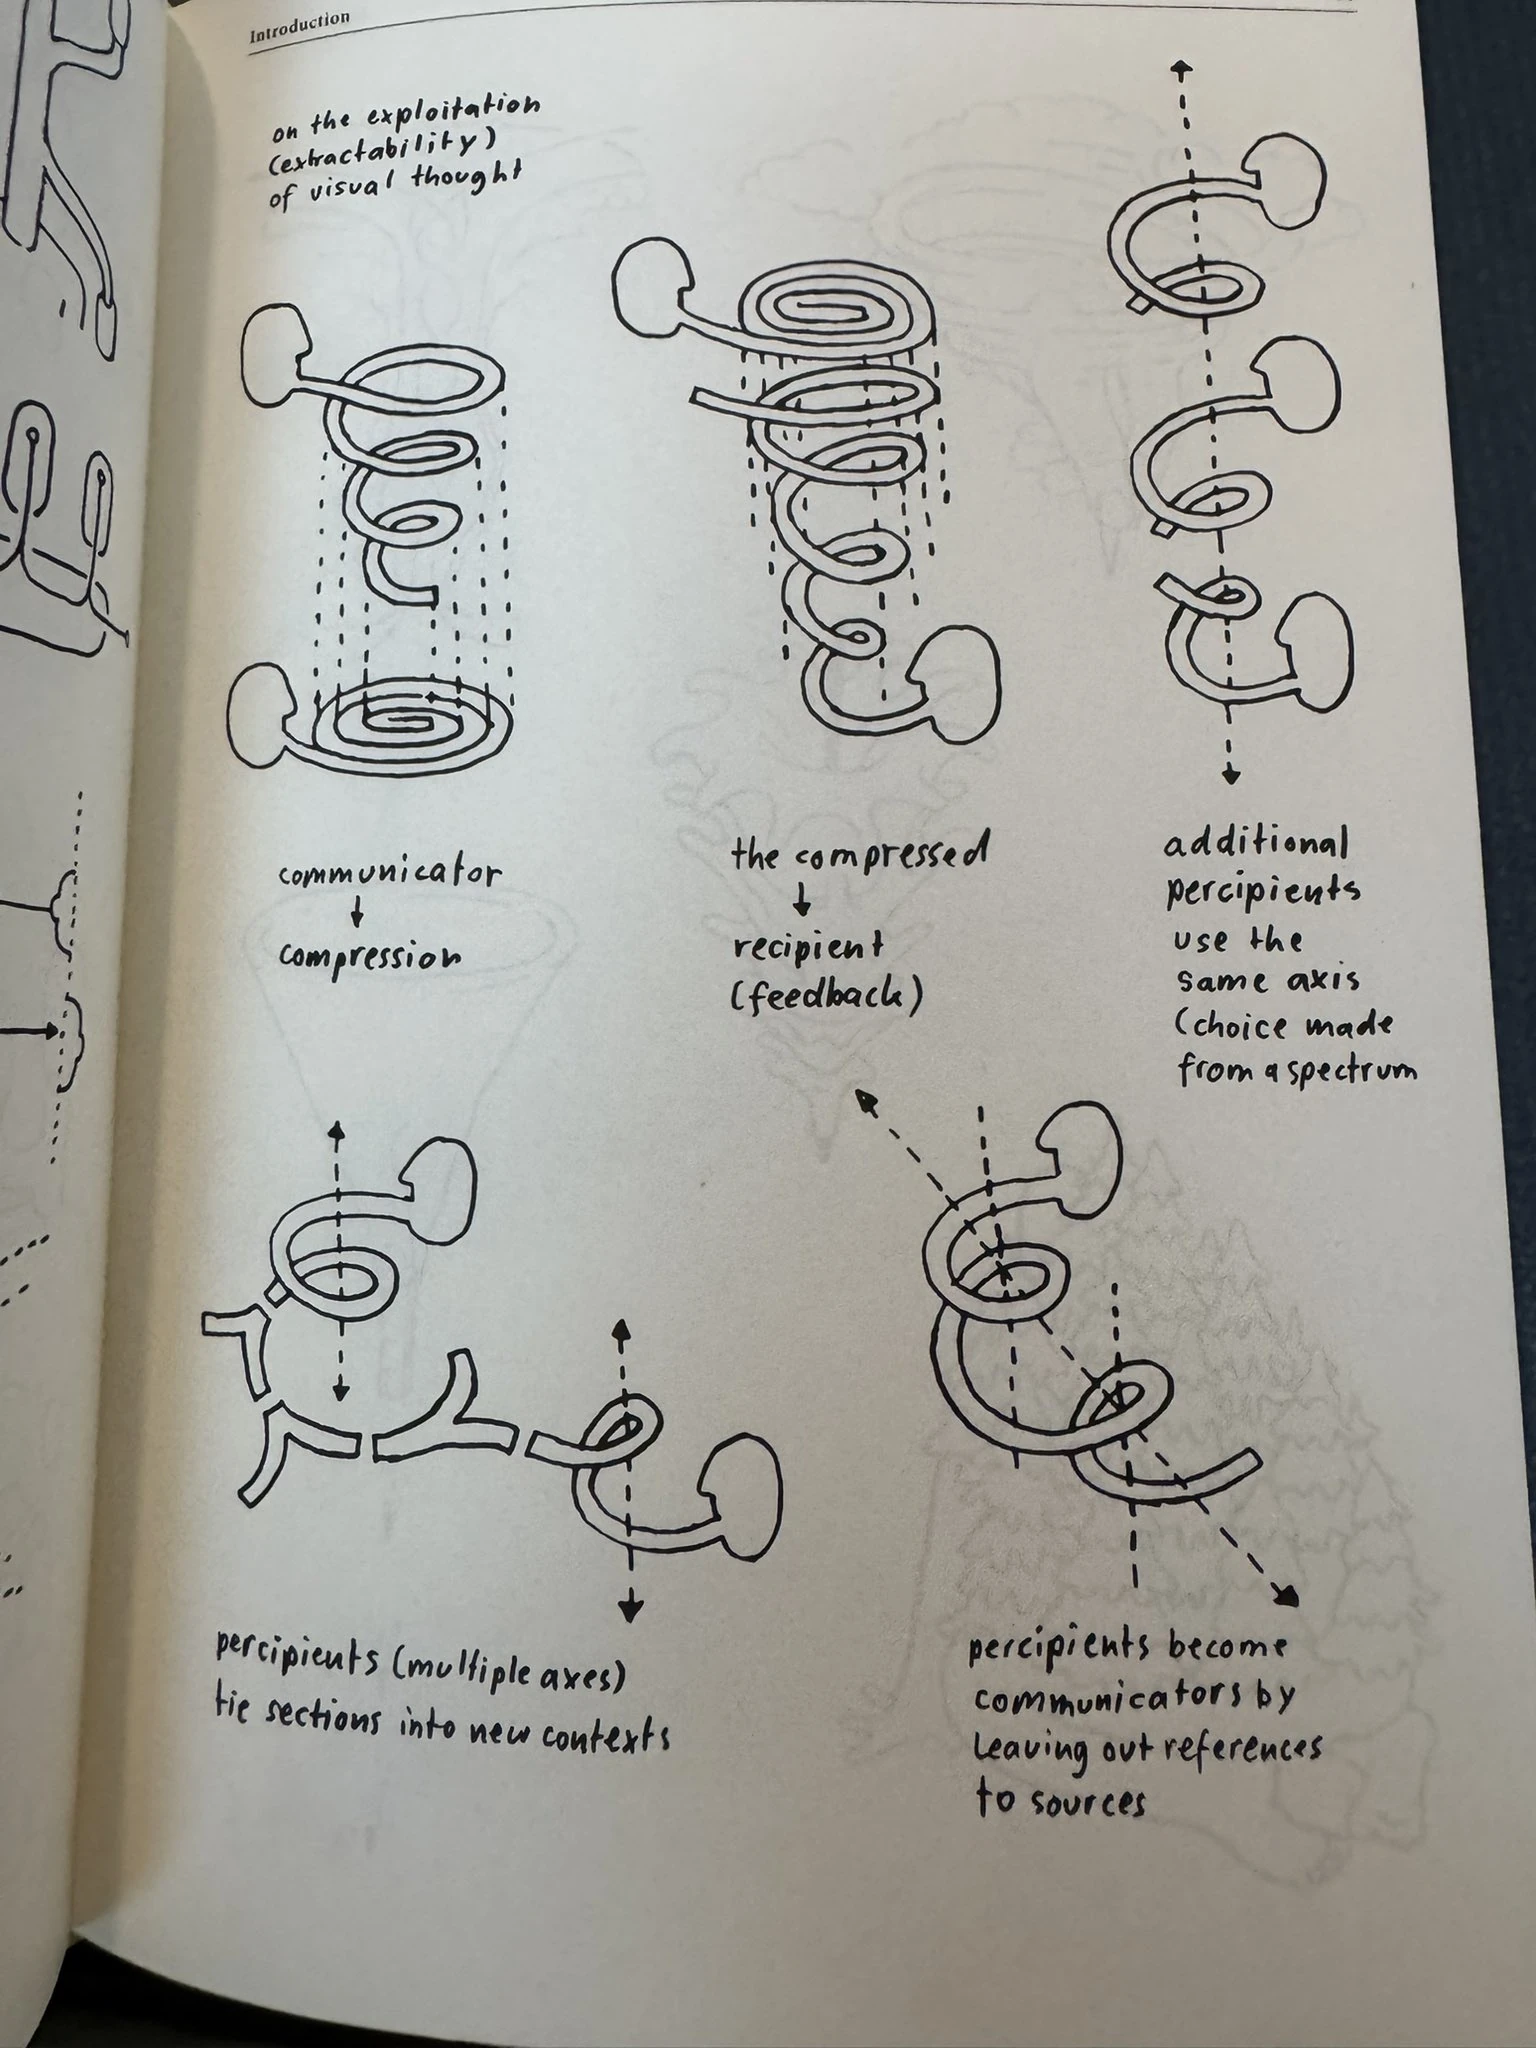 Introduction
on the exploitation
(extractability)
of visual thought
communicator
compression
the compressed
recipient
(feedback)
additional
percipients
use the
same axis
(choice made
from a spectrum
percipients (multiple axes)
tie sections into new contexts
percipients become
communicators by
leaving out references
to sources